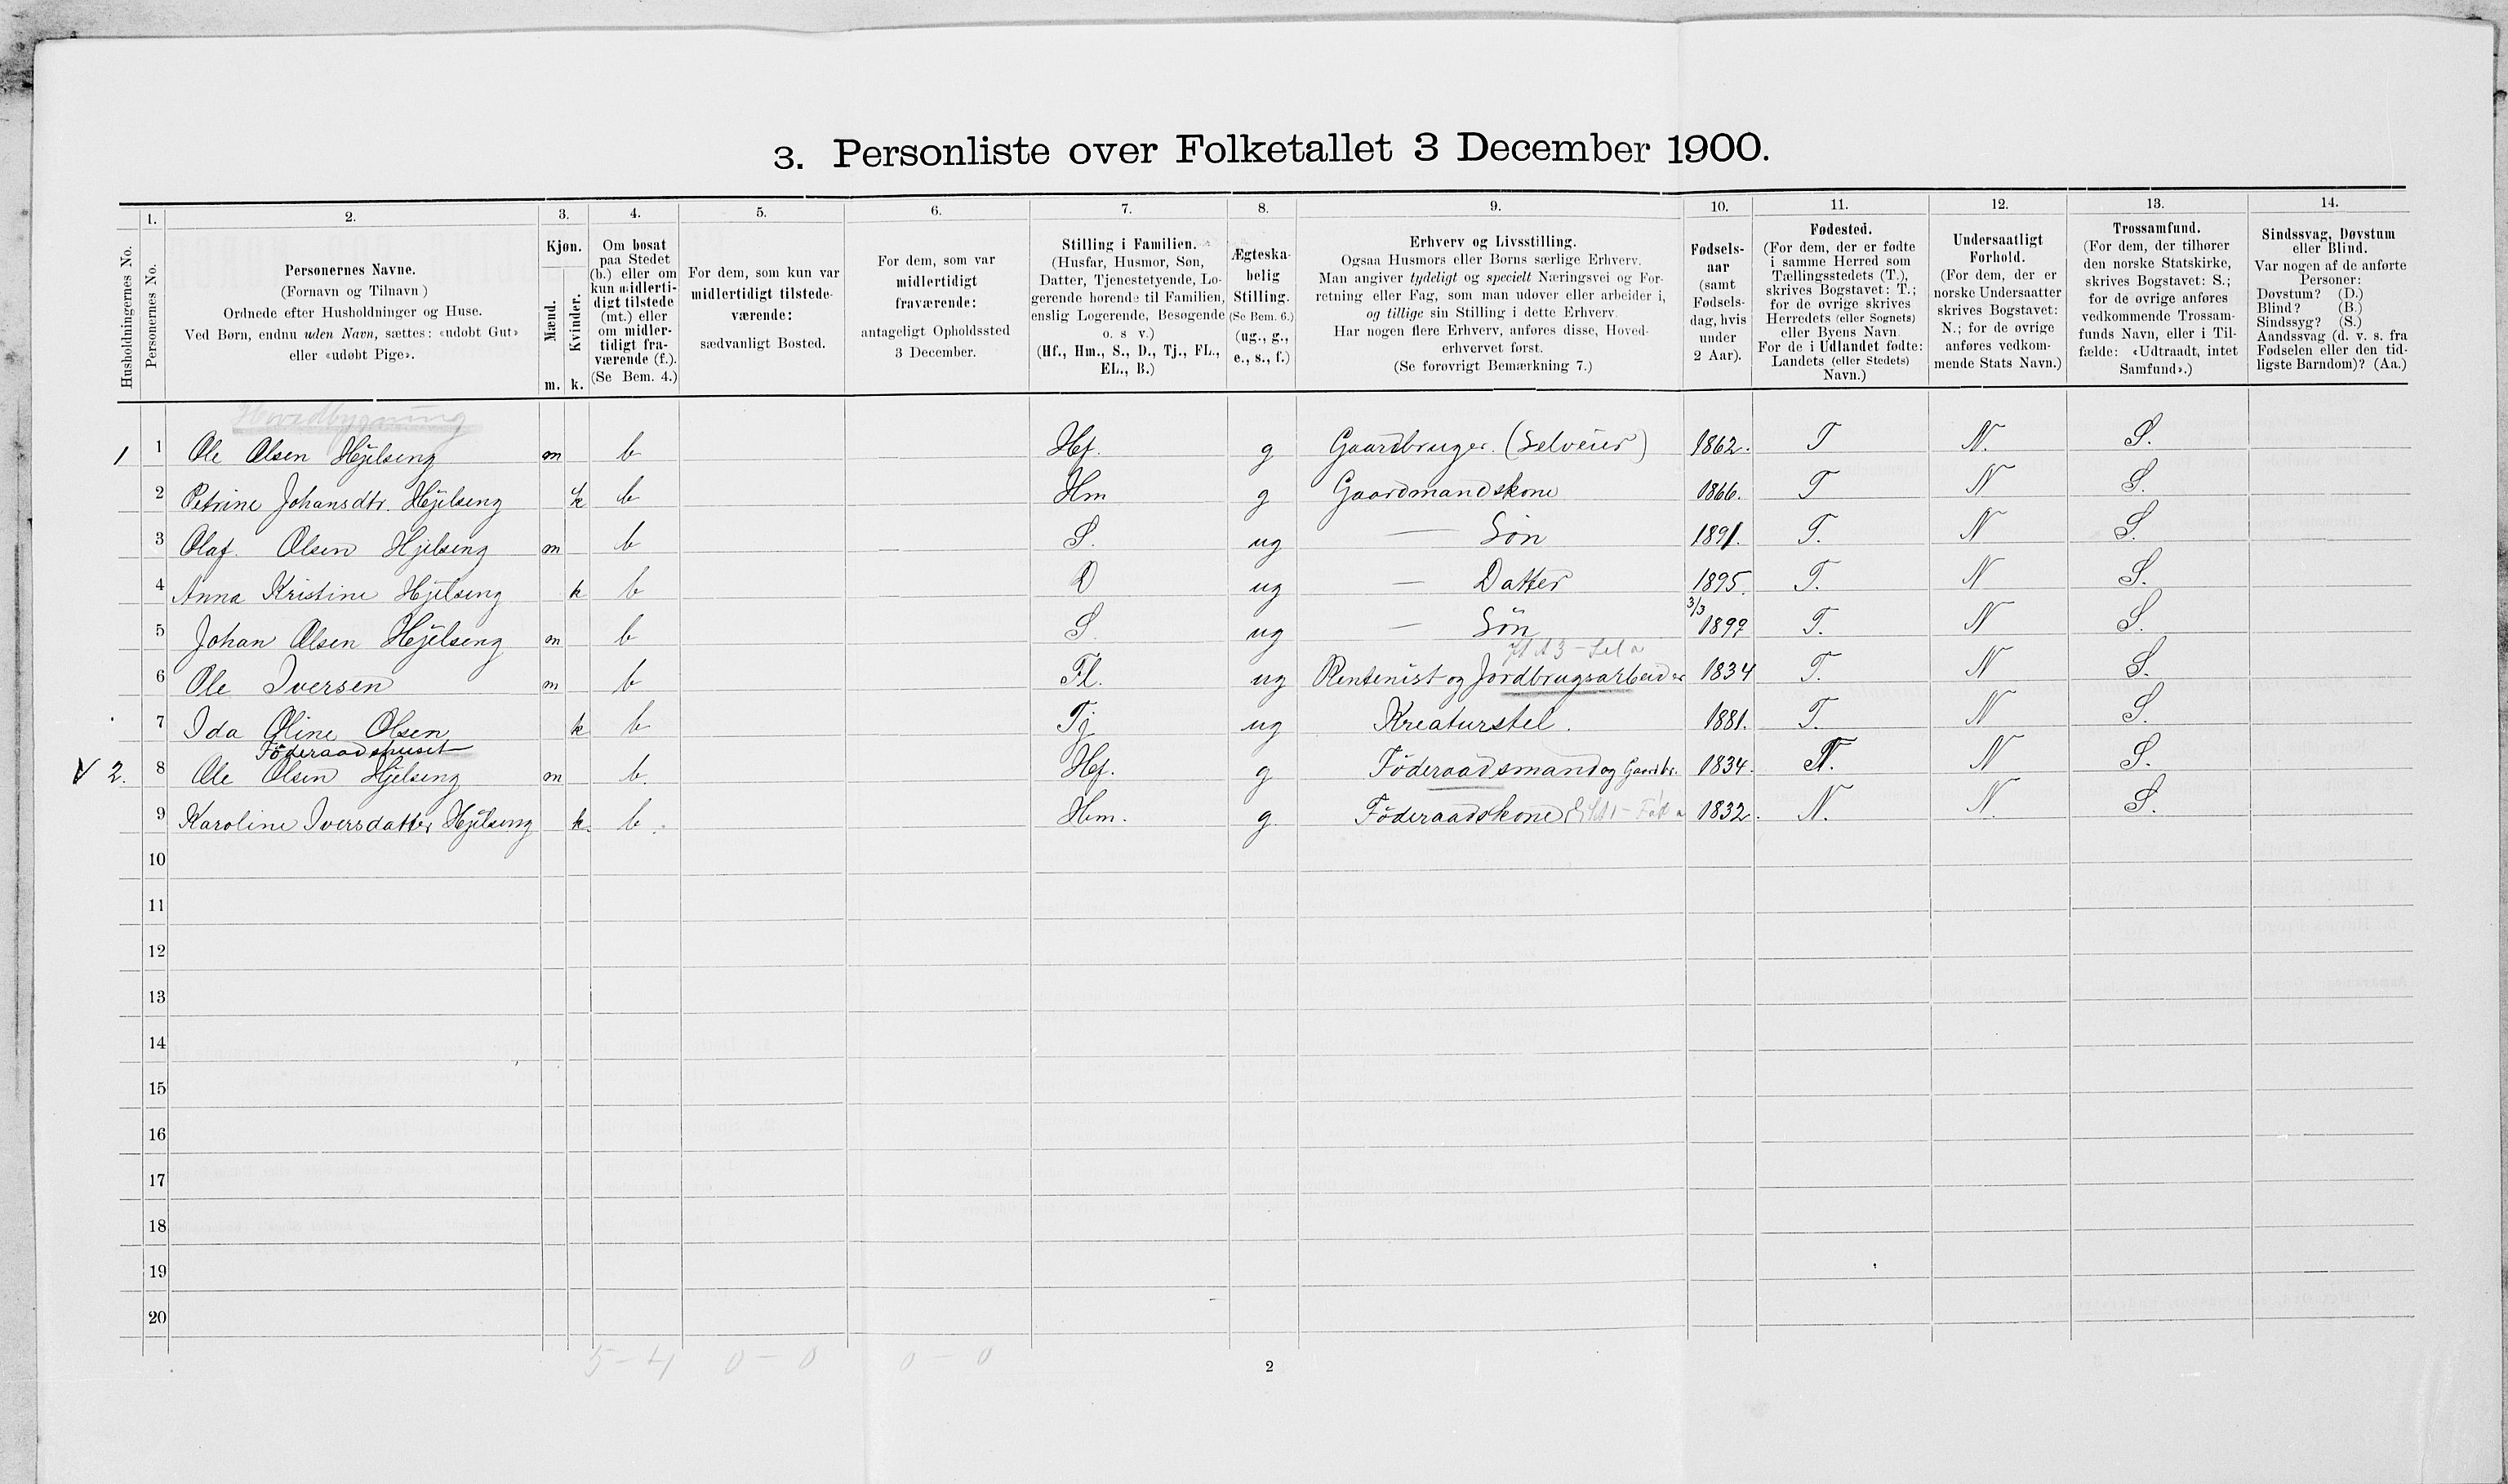 3. Personliste over Folketallet 3 December 1900.
1. 2. 3. 4. 5. 6. 7. 8. 9. 10. 11. 12. 13. 14.
Husholdningernes No.
Personernes No.
Personernes Navne.
(Fornavn og Tilnavn)
Ordnede efter Husholdninger og Huse.
Ved Børn, endnu uden Navn, sættes: «udøbt Gut»
eller «udøbt Pige».
Kjøn.
Mænd.
Kvinder.
m. k.
Om bosat
paa Stedet
(b.) eller om
kun midlerti-
digt tilstede
(mt.) eller
om midler-
tidigt fra-
værende (f.).
(Se Bem. 4.)
For dem, som kun var
midlertidigt tilstede-
værende:
sædvanligt Bosted.
For dem, som var
midlertidigt
fraværende:
antageligt Opholdssted
3 December.
Stilling i Familien.
(Husfar, Husmor, Søn,
Datter, Tjenestetyende, Lo-
gerende hørende til Familien,
enslig Logerende, Besøgende
o. s v.)
(Hf., Hm., S., D., Tj., FL.,
EL., B.)
Ægteska-
belig
Stilling.
(Se Bem. 6.)
(ug., g.,
e., s., f.)
Erhverv og Livsstilling.
Ogsaa Husmors eller Børns særlige Erhverv.
Man angiver tydeligt og specielt Næringsvei og For-
retning eller Fag, som man udøver eller arbeider i,
og tillige sin Stilling i dette Erhverv.
Har nogen flere Erhverv, anføres disse, Hoved-
erhvervet først.
(Se forøvrigt Bemærkning 7.)
Fødsels-
aar
(samt
Fødsels-
dag, hvis
under
2 Aar).
Fødested.
(For dem, der er fødte
i samme Herred som
Tællingsstedets (T.),
skrives Bogstavet: T.;
for de øvrige skrives
Herredets (eller Sognets)
eller Byens Navn.
For de i Udlandet fødte:
Landets (eller Stedets)
Navn.)
Undersaatligt
Forhold.
(For dem, der er
norske Undersaatter
skrives Bogstavet:
N.; for de øvrige
anføres vedkom-
mende Stats Navn.)
Trossamfund.
(For dem, der tilhører
den norske Statskirke,
skrives Bogstavet: S.;
for de øvrige anføres
vedkommende Trossam-
funds Navn, eller i Til-
fælde: «Udtraadt, intet
Samfund».)
Sindssvag, Døvstum
eller Blind.
Var nogen af de anførte
Personer:
Døvstum? (D.)
Blind? (B.)
Sindssyg? (S.)
Aandssvag (d. v. s. fra
Fødselen eller den tid-
ligste Barndom)? (Aa.)
Hovedbygning
1 1 Ole Olsen Hjelseng m b Hf. g Gaardbruger. (Selveier) 1862. T N. S.
2 Petrine Johansdtr. Hjelseng k b Hm g Gaardmandskone 1866. T N S.
3 Olaf Olsen Hjelseng m b S. ug — Søn 1891. T. N S.
4 Anna Kristine Hjelseng k b D ug — Datter 1895. T. N S.
5 Johan Olsen Hjelseng m b S. ug — Søn 3/3 1897 T. N S.
6 Ole Iversen m b Fl. ug Rentenist og Jordbrugsarbeider 1834 T. N S.
7 Ida Oline Olsen k b Tj ug Kreaturstel. 1881. T. N S.
Føderaadshuset
V 2. 8 Ole Olsen Hjelseng m b. Hf. g Føderaadsmand og Gaardbr. 1834. T. N S.
9 Karoline Iversdatter Hjelseng k. b. Hm. g Føderaadskone 1832. N. N. S.
10
11
12
13
14
15
16
17
18
19
20
5 - 4 0 - 0 0 - 0
2